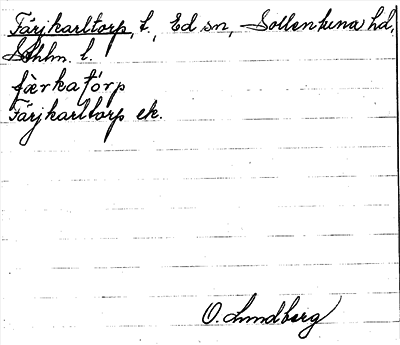 Färjkarltorp, t., Ed sn, Sollentuna hd,
Sthlm. l.
færkatórp
Färjkarltorp ek.
O. Lundberg